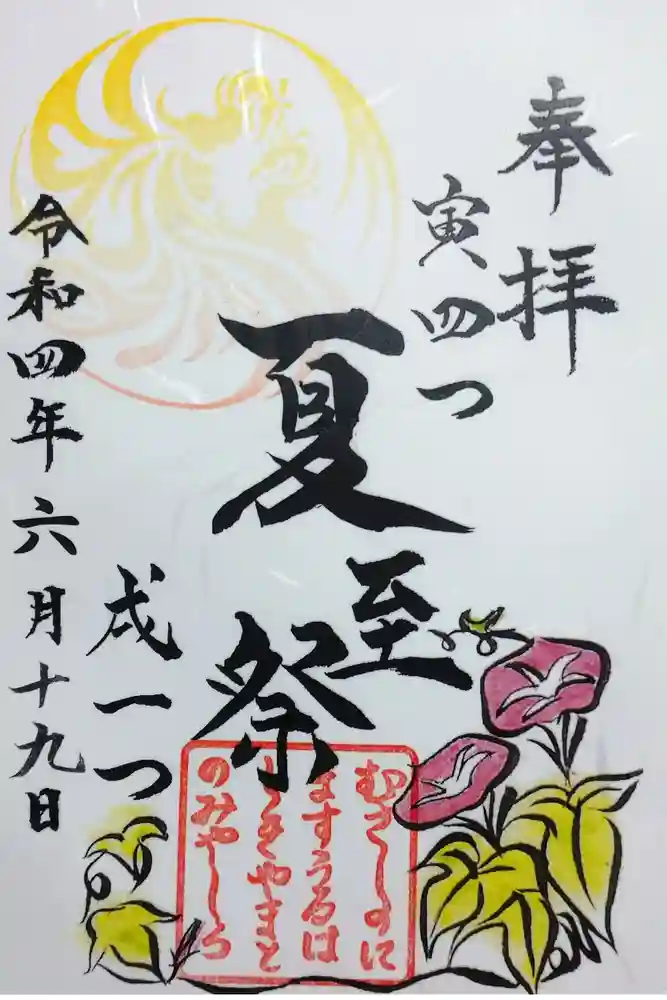 奉拝
寅四つ
夏至祭
戌一つ
令和四年六月十九日
むさしのに
ますうるは
しきやまと
のみやしろ